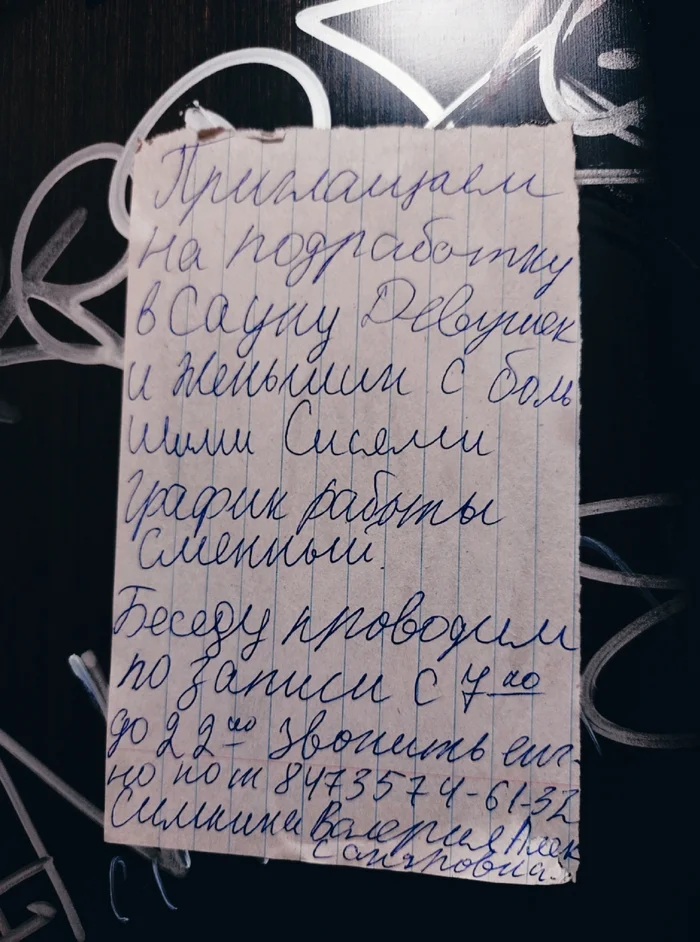 Приглащаем
на подработку
в Сауну Девушек
и женьшин с боль
шими Сисями
График работы
Сменный.
Беседу проводим
по записи с 7 00
до 22 00 Звонить
но по т 8473574-61-32
Симкина Валерия Алек
сандровна.